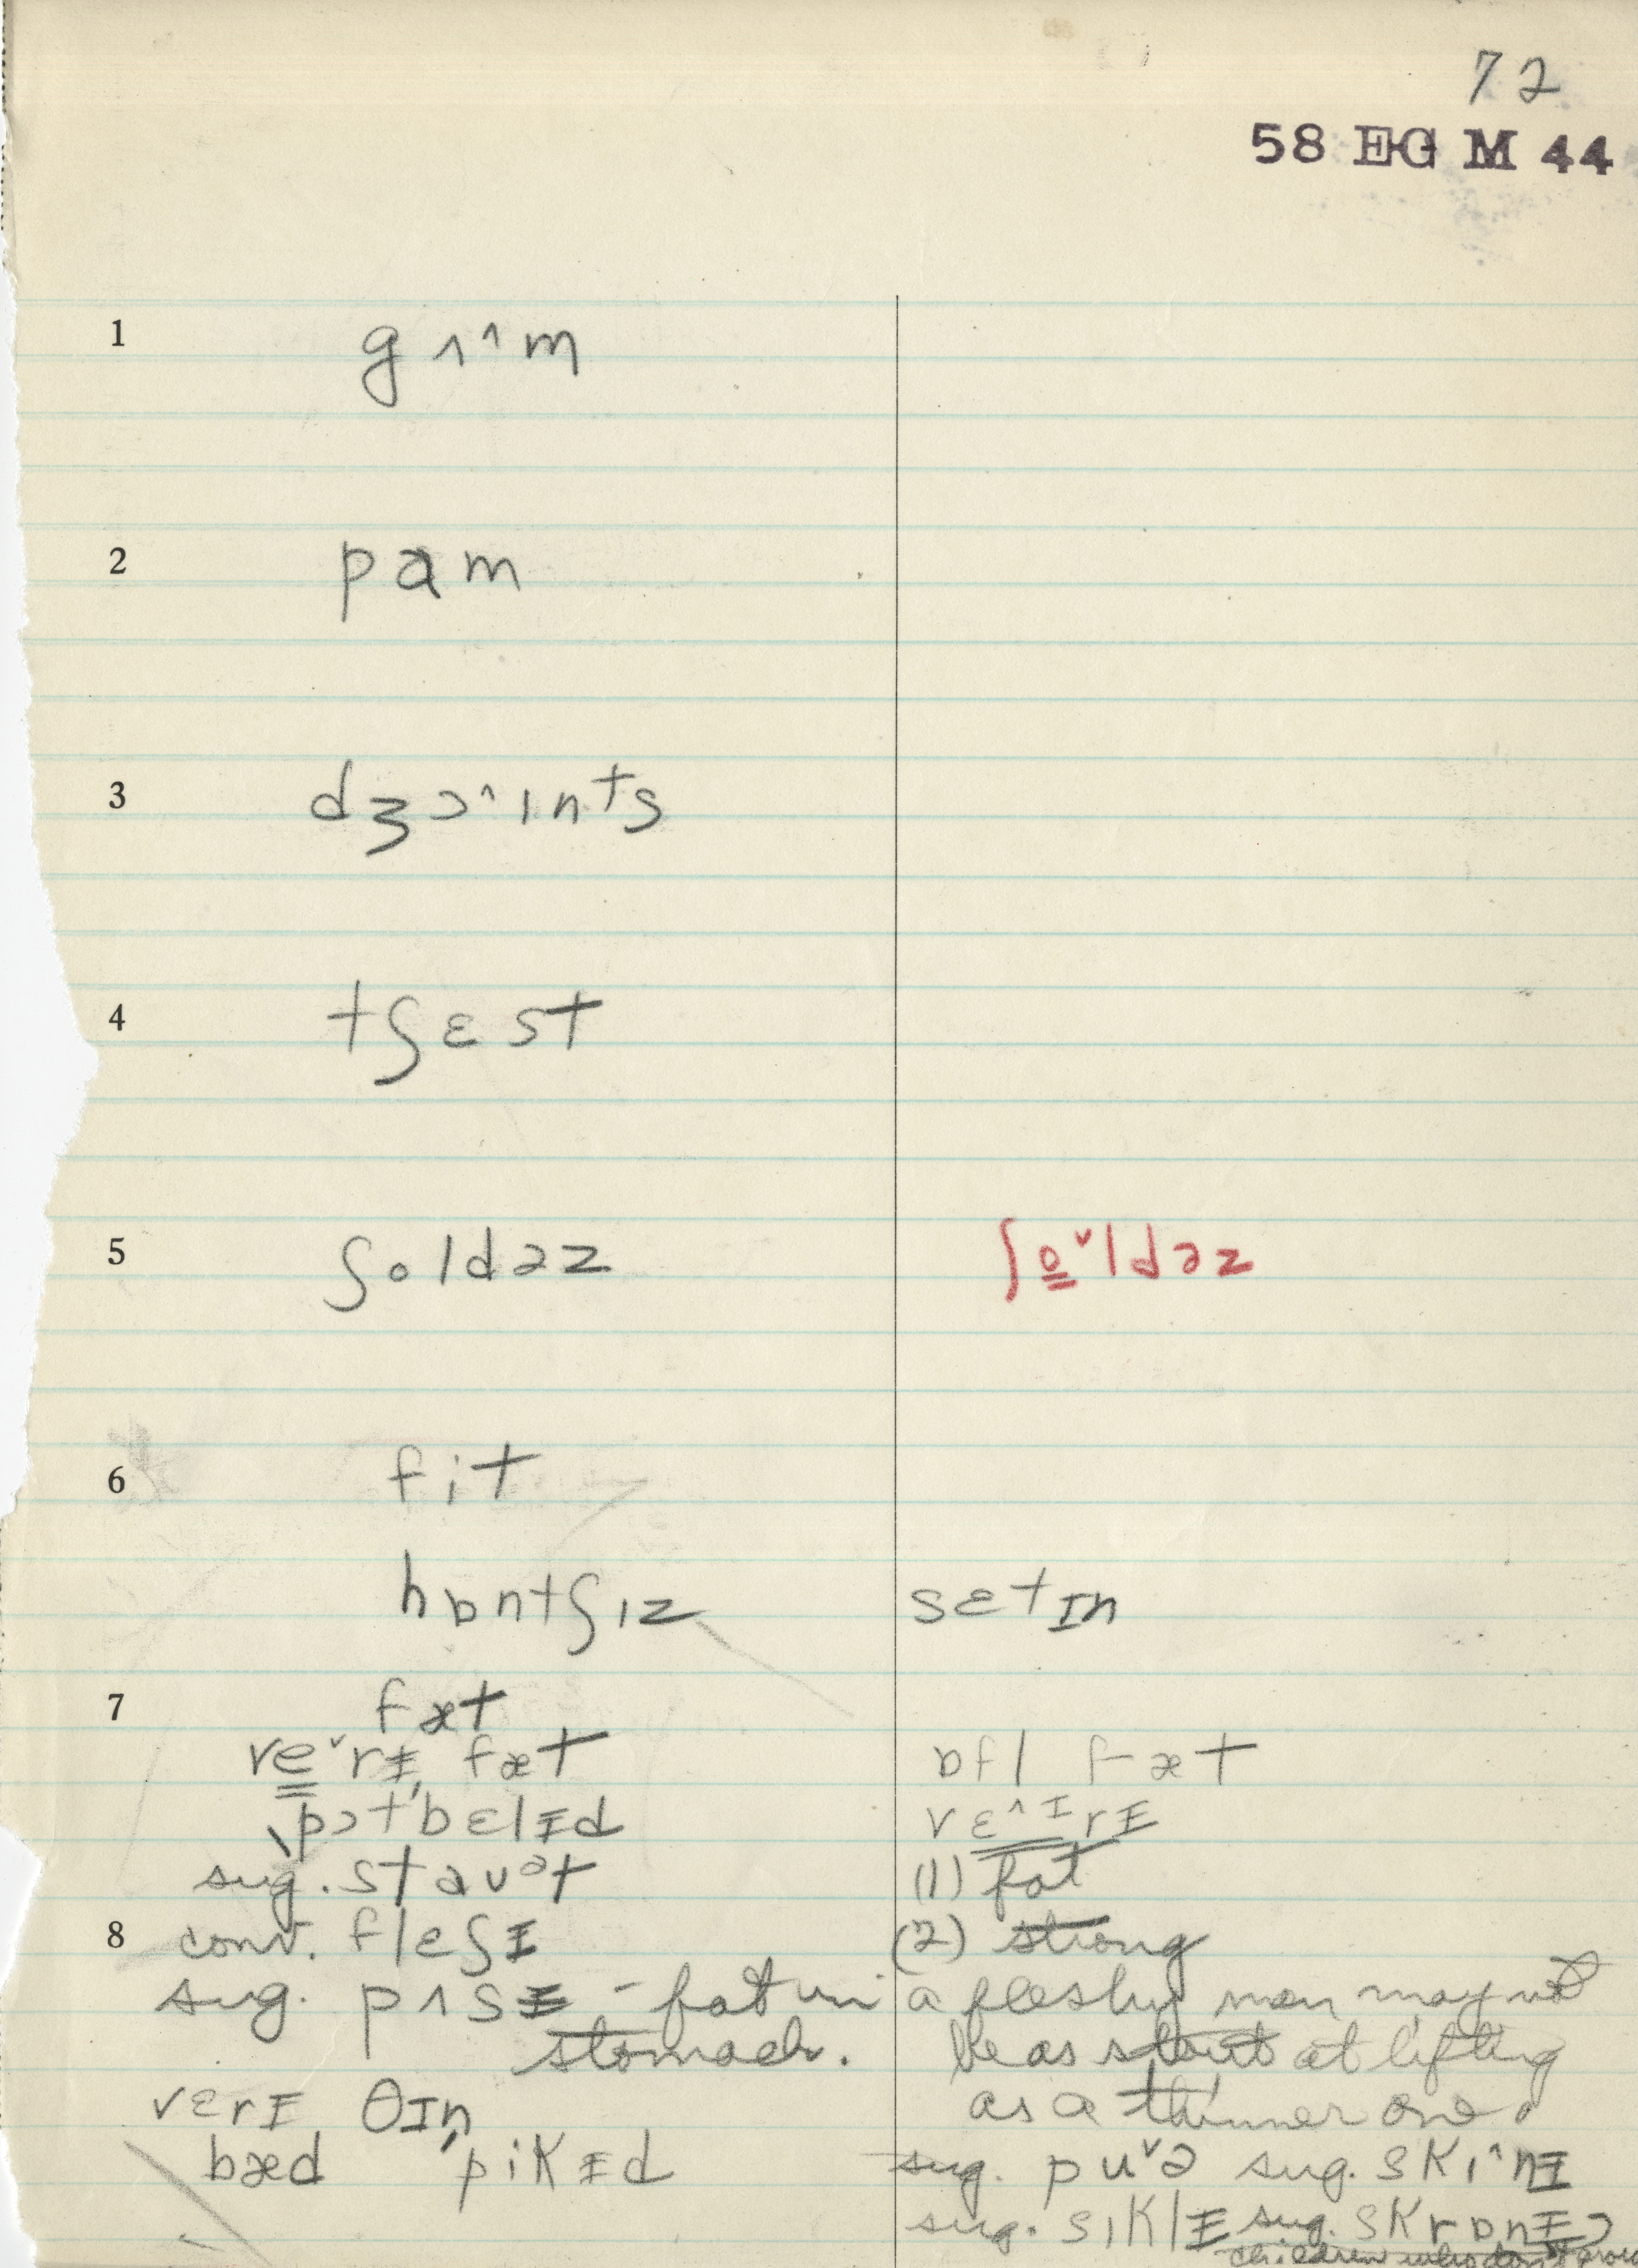 72
58 EG M 44
1 gʌ^m
2 pɑm
3 dʒɔ^ɪnᵗs
4 tʃɛst
5 ʃoldəz ʃo̳ˇldəz
6 fit
hɒntʃɪz sɛtɪn
7 fæt
ve̳ˇrɨ, fæt ɒfl fæt
ˌpɔt'bɛlɨd vɛ̳^ɪrɨ
sug. staʊᵊt (1) fat
8 conv. flɛʃɨ (2) strong
sug. pʌsɨ - fat in a fleshy man may not
stomach. be as stout at lifting
vɛrɨ θɪn as a thinner one.
bæd ˌpikɨd sug. puˇə sug. skɪ^nɨ
sug. sɪklɨ sug. skrɒnɨ
children who don't grow